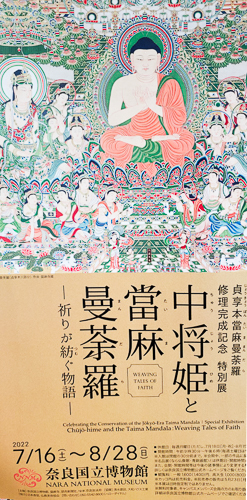 貞享本當麻曼荼羅
修理完成記念 特別展
中将姫と
ちゅうじょうひめ
當麻
たいま
曼荼羅
まんだら
―祈りが紡ぐ物語―
WEAVING
TALES OF
FAITH
Celebrating the Conservation of the Jōkyō-Era Taima Mandala | Special Exhibition
Chūjō-hime and the Taima Mandala : Weaving Tales of Faith
2022
7/16(土)〜8/28(日)
奈良国立博物館
NARA NATIONAL MUSEUM